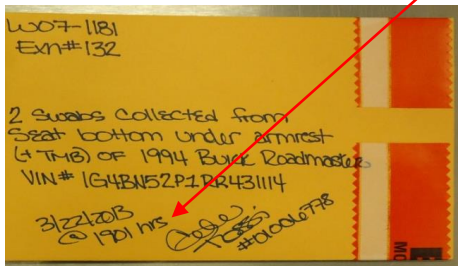 W07-1181
Exh#132
2 Swabs Collected from
Seat bottom under armrest
(+ TMB) OF 1994 Buick Roadmaster
VIN# 1G4BN52P1RR431114
3/22/2013
@ 1901 hrs
#01006778